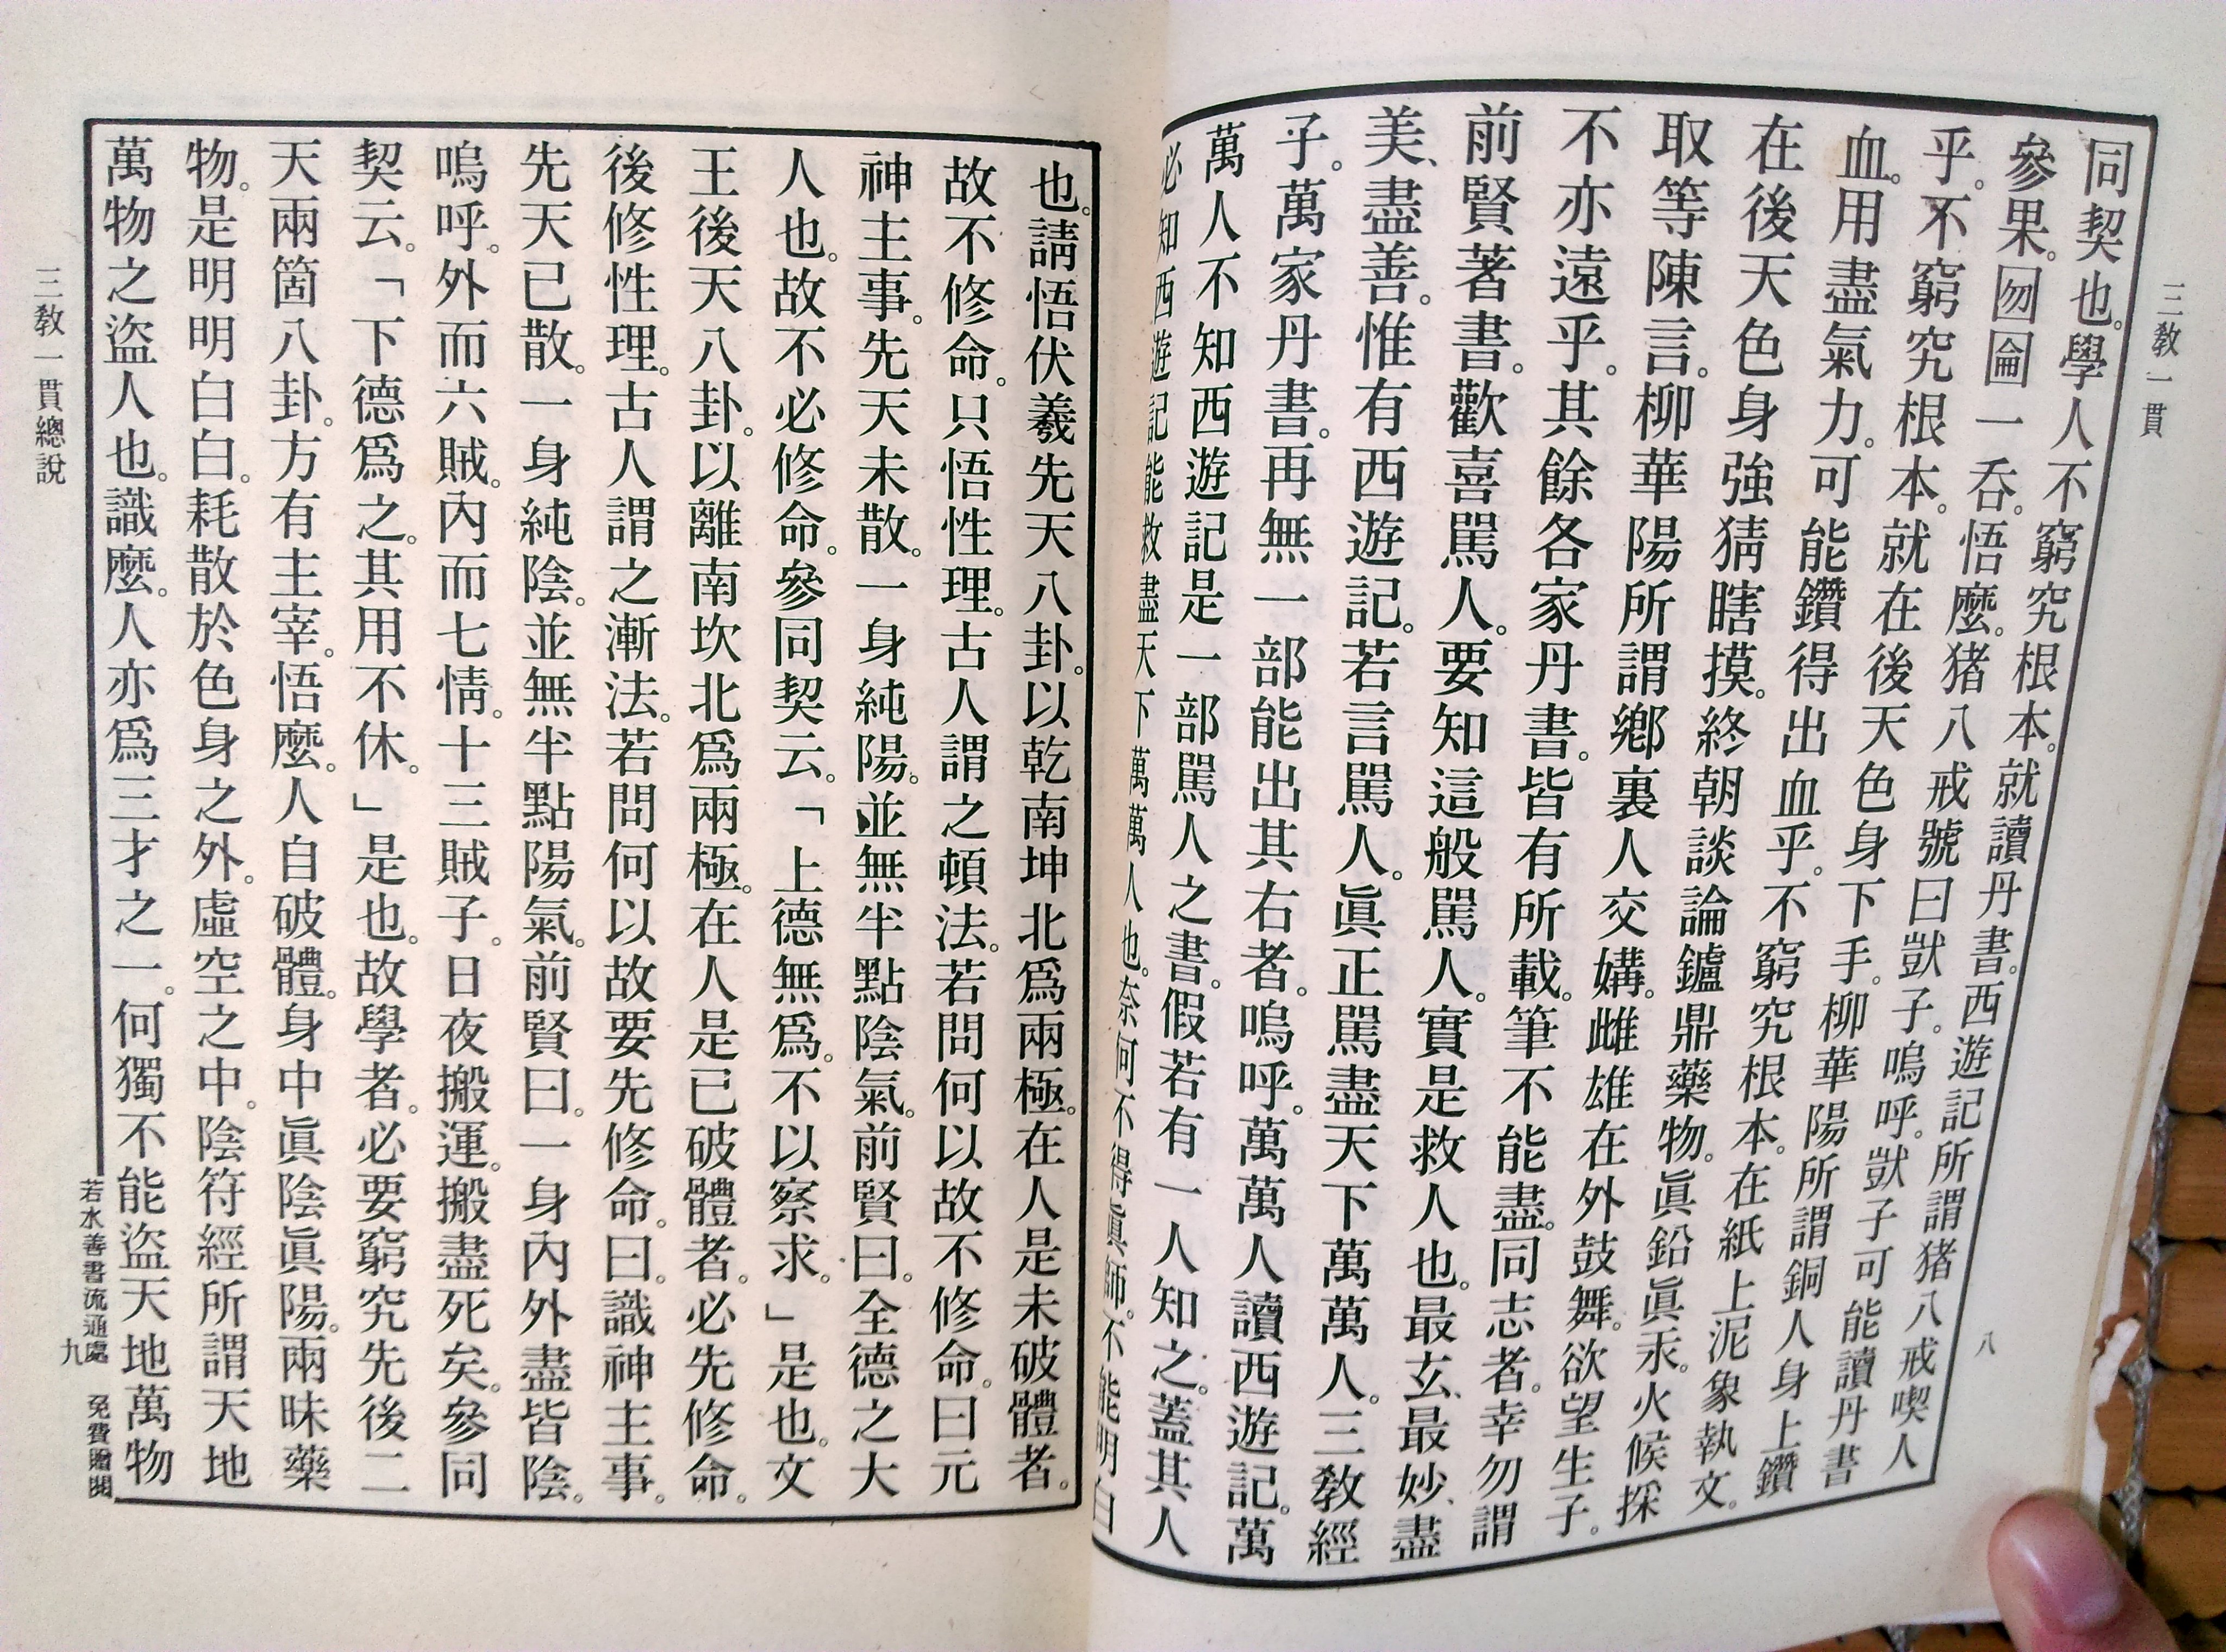 三教一貫
八
同契也。學人不窮究根本。就讀丹書。西遊記所謂猪八戒喫人
參果。囫圇一吞。悟麼。猪八戒號曰獃子。嗚呼。獃子可能讀丹書
乎。不窮究根本。就在後天色身下手。柳華陽所謂銅人身上鑽
血。用盡氣力。可能鑽得出血乎。不窮究根本。在紙上泥象執文。
在後天色身強猜瞎摸。終朝談論鑪鼎藥物。眞鉛眞汞。火候採
取等陳言。柳華陽所謂鄉裏人交媾。雌雄在外鼓舞。欲望生子。
不亦遠乎。其餘各家丹書。皆有所載。筆不能盡。同志者。幸勿謂
前賢著書。歡喜駡人。要知這般駡人。實是救人也。最玄、最妙、盡
美、盡善。惟有西遊記。若言駡人。眞正駡盡天下萬萬人。三教經
子。萬家丹書。再無一部能出其右者。嗚呼。萬萬人讀西遊記。萬
萬人不知西遊記是一部駡人之書。假若有一人知之。蓋其人
必知西遊記能救盡天下萬萬人也。奈何不得眞師。不能明白
也。請悟伏羲先天八卦。以乾南坤北爲兩極。在人是未破體者。
故不修命。只悟性理。古人謂之頓法。若問何以故不修命。曰元
神主事。先天未散。一身純陽。並無半點陰氣。前賢曰。全德之大
人也。故不必修命。參同契云。「上德無爲。不以察求。」是也。文
王後天八卦。以離南坎北爲兩極。在人是已破體者。必先修命。
後修性理。古人謂之漸法。若問何以故要先修命。曰。識神主事。
先天已散。一身純陰。並無半點陽氣。前賢曰。一身內外盡皆陰。
嗚呼。外而六賊。內而七情。十三賊子。日夜搬運。搬盡死矣。參同
契云。「下德爲之。其用不休。」是也。故學者。必要窮究先後二
天兩箇八卦。方有主宰。悟麼。人自破體。身中眞陰眞陽。兩味藥
物。是明明白白。耗散於色身之外。虛空之中。陰符經所謂天地
萬物之盜人也。識麼。人亦爲三才之一。何獨不能盜天地萬物
三教一貫總說
九
若水善書流通處 免費贈閱